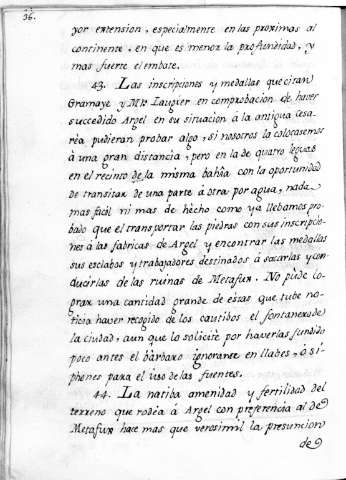 36.
yor extension, especialmente en las proximas al
continente, en que es menor la profundidad, y
mas fuerte el embate.
43. Las inscripciones y medallas que citan
Gramaye y Mr. Laugier en comprobacion de haver
succedido Argel en su situación à la antigua Cesa-
rèa pudieran probar algo, si nosotros la colocasemos
à una gran distancia, pero en la de quatro leguas
en el recinto de la misma bahia con la oportunidad
de transitar de una parte à otra por agua, nada
mas facil ni mas de hecho como ya llebamos pro-
bado que el transportar las piedras con sus inscripcio-
nes à las fabricas de Argel y encontrar las medallas
sus esclabos y trabajadores destinados à sacarlas y con-
ducirlas de las ruinas de Metafux. No pude lo-
grar una cantidad grande de estas que tube no-
ticia haver recogido de los cautibos el fontanero de
la ciudad, aun que lo solicitè por haverlas fundido
poco antes el bàrbaro ignorante en llabes, ò si-
phones para el uso de las fuentes.
44. La natiba amenidad y fertilidad del
terreno que rodèa à Argel con preferencia al de
Metafux hace mas que verosimil la presuncion
de